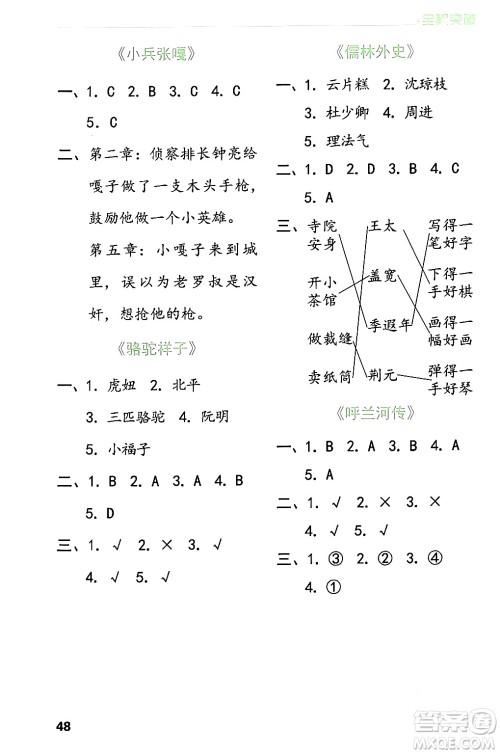 全解突破
《小兵张嘎》
一、1. C  2. B  3. C  4. C
5. C
二、第二章：侦察排长钟亮给
嘎子做了一支木头手枪，
鼓励他做一个小英雄。
第五章：小嘎子来到城
里，误以为老罗叔是汉
奸，想抢他的枪。
《骆驼祥子》
一、1. 虎妞  2. 北平
3. 三匹骆驼  4. 阮明
5. 小福子
二、1. B  2. A  3. A  4. B
5. D
三、1. √  2. ×  3. √
4. √  5. √
《儒林外史》
一、1. 云片糕  2. 沈琼枝
3. 杜少卿  4. 周进
5. 理法气
二、1. D  2. D  3. B  4. C
5. A
三、寺院安身  王太  写得一笔好字
开小茶馆  盖宽  下得一手好棋
做裁缝  季遐年  画得一幅好画
卖纸筒  荆元  弹得一手好琴
《呼兰河传》
一、1. B  2. A  3. B  4. A
5. A
二、1. √  2. ×  3. ×
4. √  5. √
三、1. ③  2. ②  3. ④
4. ①
48